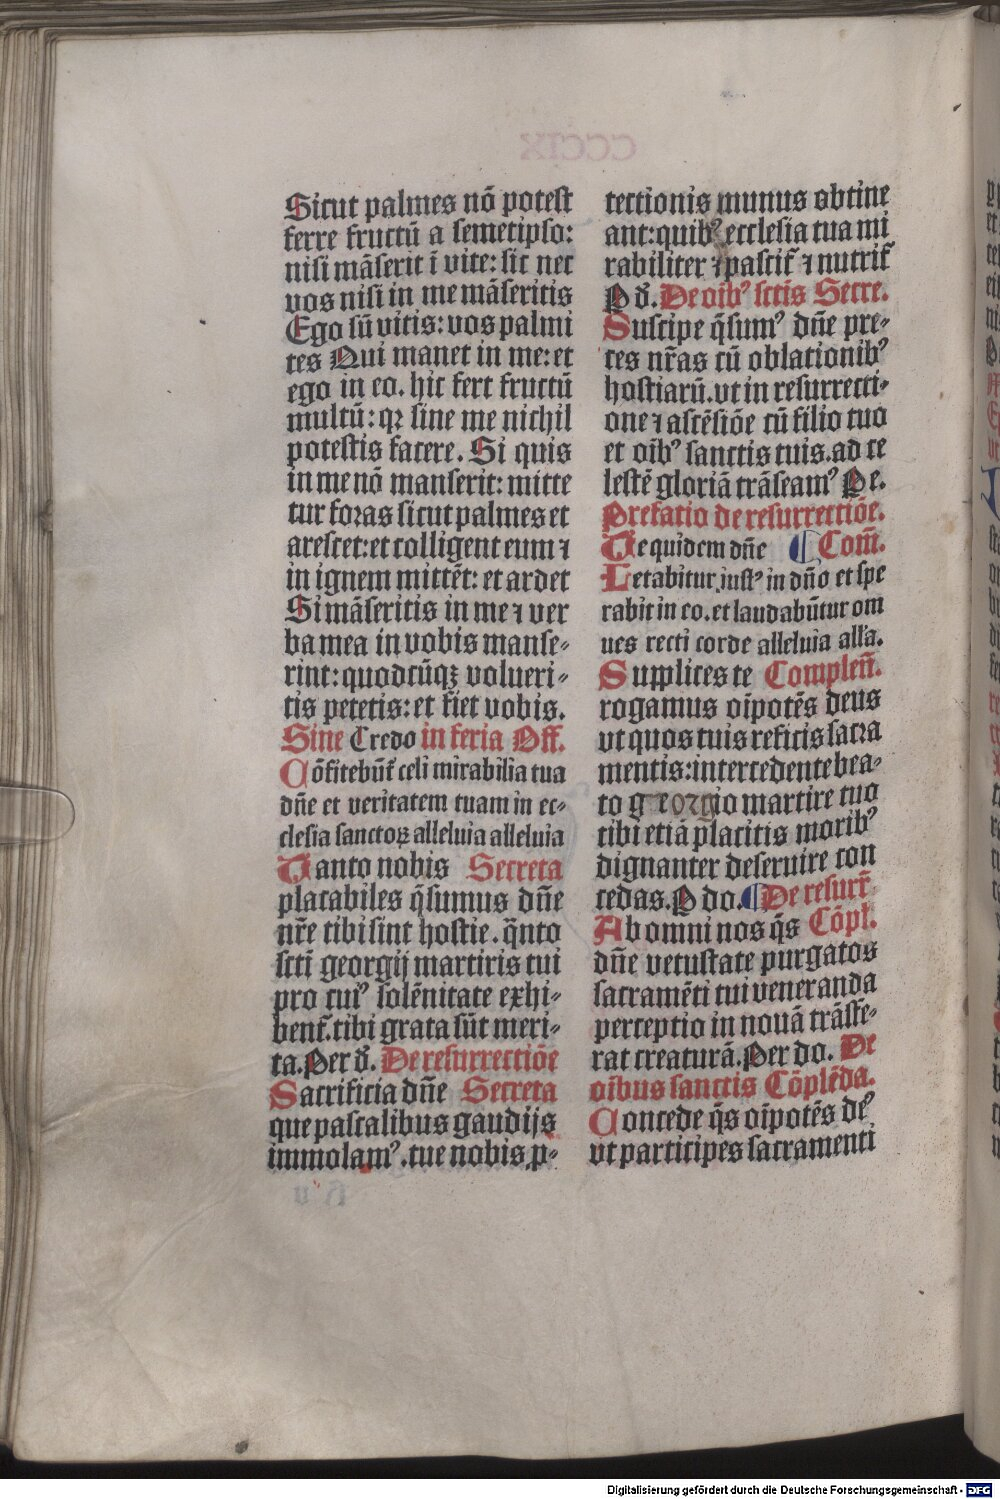 Sicut palmes nō potest
ferre fructū a semetipso:
nisi māserit ī vite: sic nec
vos nisi in me māseritis
Ego sū vitis: vos palmi
tes Qui manet in me: et
ego in eo. hic fert fructū
multū: qꝛ sine me nichil
potestis facere. Si quis
in me nō manserit: mitte
tur foꝛas sicut palmes et
arescet: et colligent eum ⁊
in ignem mittēt: et ardet
Si māseritis in me ⁊ ver
ba mea in vobis manse-
rint: quodcūqꝫ volueri-
tis petetis: et fiet vobis.
Sine Credo in feria Off.
Cōfitebūt᷑ celi mirabilia tua
dn̄e et veritatem tuam in ec-
clesia sanctoꝝ alleluia alleluia
Tanto nobis Secreta
placabiles q̄sumus dn̄e
nr̄e tibi sint hostie. q̄nto
sctī georgij martiris tui
pro cuiꝰ solēnitate exhi-
bent᷑. tibi grata sūt meri-
ta. Per d̄. De resurrectiōe
Sacrificia dn̄e Secreta
que pascalibus gaudijs
immolamꝰ. tue nobis ꝓ-
tectionis munus obtine
ant: quibꝰ ecclesia tua mi
rabiliter ⁊ pascit᷑ ⁊ nutrit᷑
P d̄. De oībꝰ sctīs Secre.
Suscipe q̄sumꝰ dn̄e pre-
ces nr̄as cū oblationibꝰ
hostiarū. vt in resurrecti-
one ⁊ ascēsiōe cū filio tuo
et oībꝰ sanctis tuis. ad ce
lestē gloriā trāseamꝰ Pe.
Prefatio de resurrectiōe.
Te quidem dn̄e Com̄.
Letabitur iustꝰ in dn̄o et spe
rabit in eo. et laudabūtur om
nes recti corde alleluia all'a.
Supplices te Complen̄.
rogamus oīpotēs deus
vt quos tuis reficis sacra
mentis: intercedente bea-
to georgio martire tuo
tibi etiā placitis moribꝰ
dignanter deseruire con
cedas. P do. De resurr̄
Ab omni nos q̄s Cōpl.
dn̄e vetustate purgatos
sacramēti tui veneranda
perceptio in nouā trāsfe-
rat creaturā. Per do. De
oībus sanctis Cōplēda.
Concede q̄s oīpotēs deꝰ
vt participes sacramenti
Digitalisierung gefördert durch die Deutsche Forschungsgemeinschaft - DFG